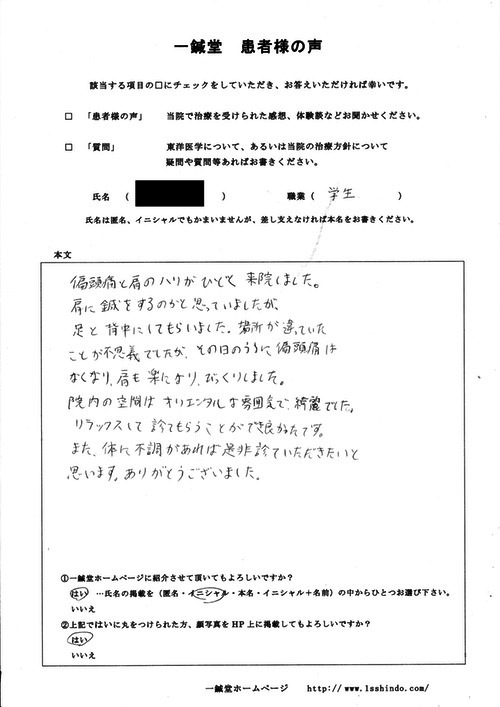 一鍼堂 患者様の声
該当する項目の□にチェックをしていただき、お答えいただければ幸いです。
□ 「患者様の声」 当院で治療を受けられた感想、体験談などお聞かせください。
□ 「質問」 東洋医学について、あるいは当院の治療方針について
疑問や質問等あればお書きください。
氏名 ( ) 職業 ( 学生 )
氏名は匿名、イニシャルでもかまいませんが、差し支えなければ本名をお書きください。
本文
偏頭痛と肩のハリがひどく来院しました。
肩に鍼をするのかと思っていましたが、
足と背中にしてもらいました。場所が違っていた
ことが不思議でしたが、その日のうちに偏頭痛は
なくなり、肩も楽になり、びっくりしました。
院内の空間はオリエンタルな雰囲気で、綺麗でした。
リラックスして診てもらうことができ良かったです。
また、体に不調があれば是非診ていただきたいと
思います。ありがとうございました。
①一鍼堂ホームページに紹介させて頂いてもよろしいですか？
はい …氏名の掲載を（匿名・イニシャル・本名・イニシャル＋名前）の中からひとつお選び下さい。
いいえ
②上記ではいに丸をつけられた方、顔写真をHP上に掲載してもよろしいですか？
はい
いいえ
一鍼堂ホームページ http://www.1sshindo.com/